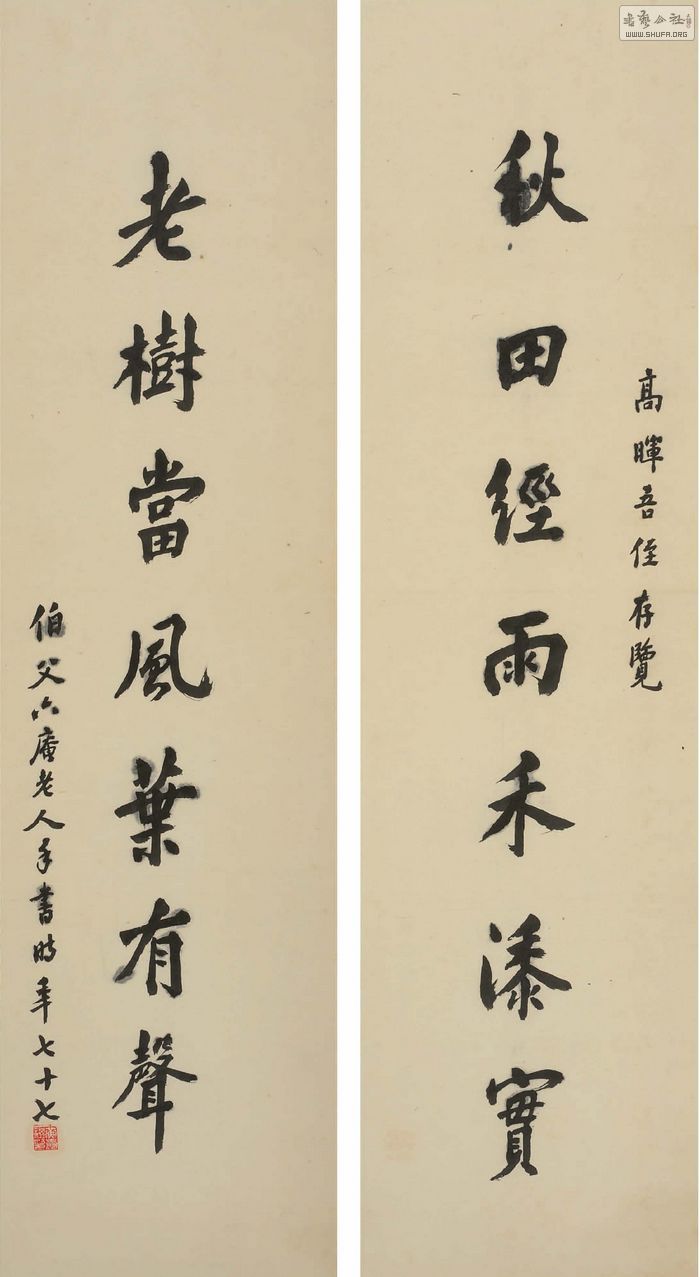 書藝公社
WWW.SHUFA.ORG
高暉吾侄存覽
秋田經雨禾添實
老樹當風葉有聲
伯父六庵老人手書時年七十七